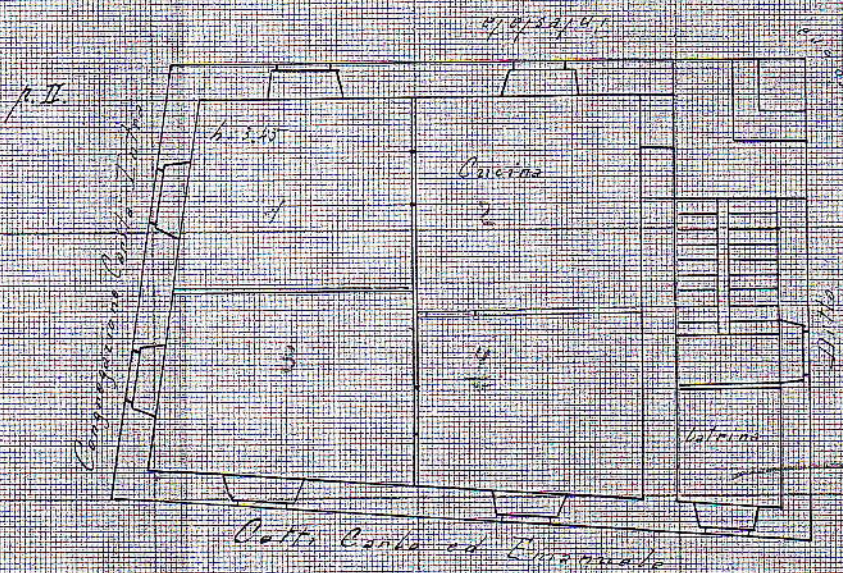 intestata
p. II.
h = 3.45
1
Cucina
2
3
4
Latrina
Congregazione Carità
Ditta
Cotti Carlo ed Emanuele